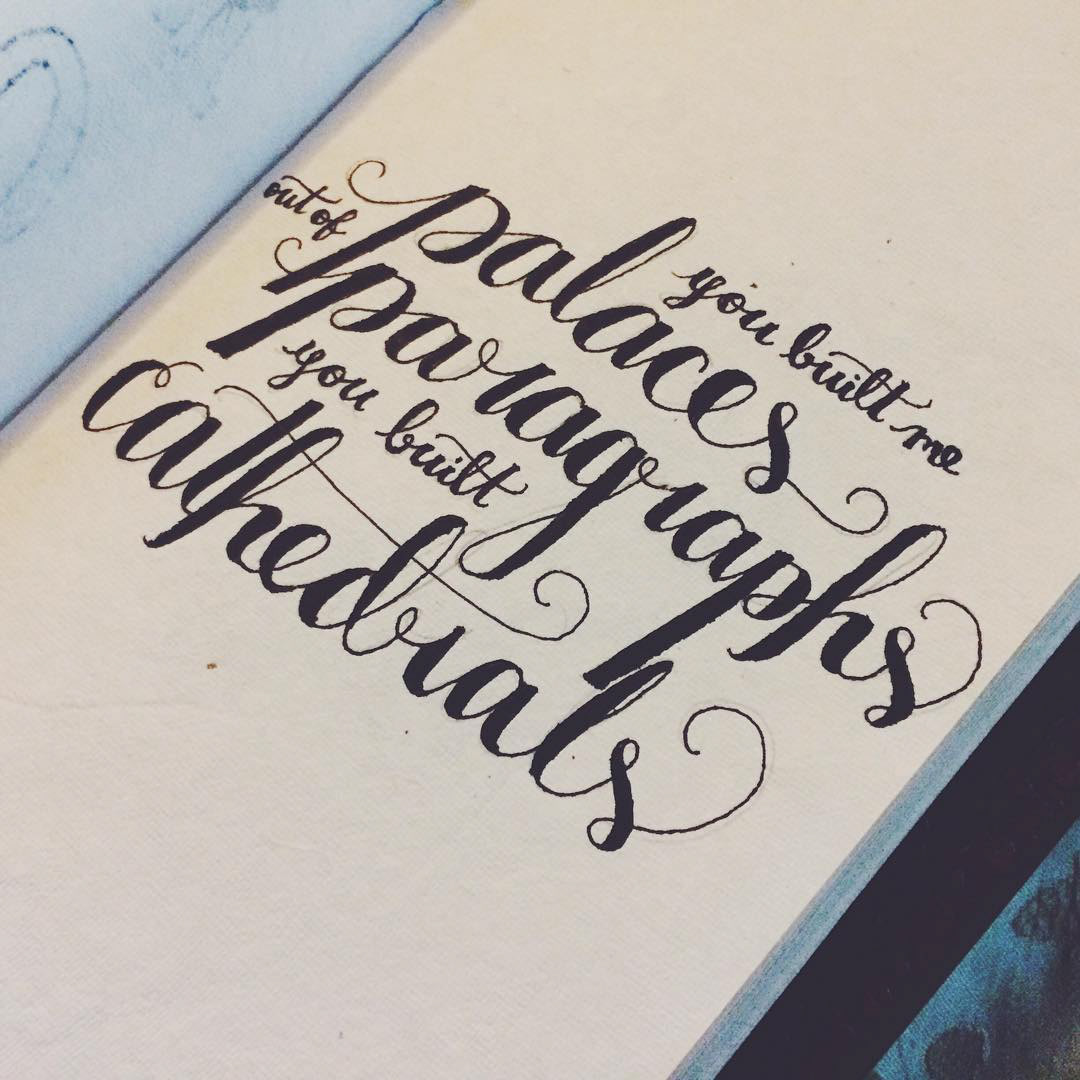 you built me
palaces
out of
paragraphs
you built
cathedrals